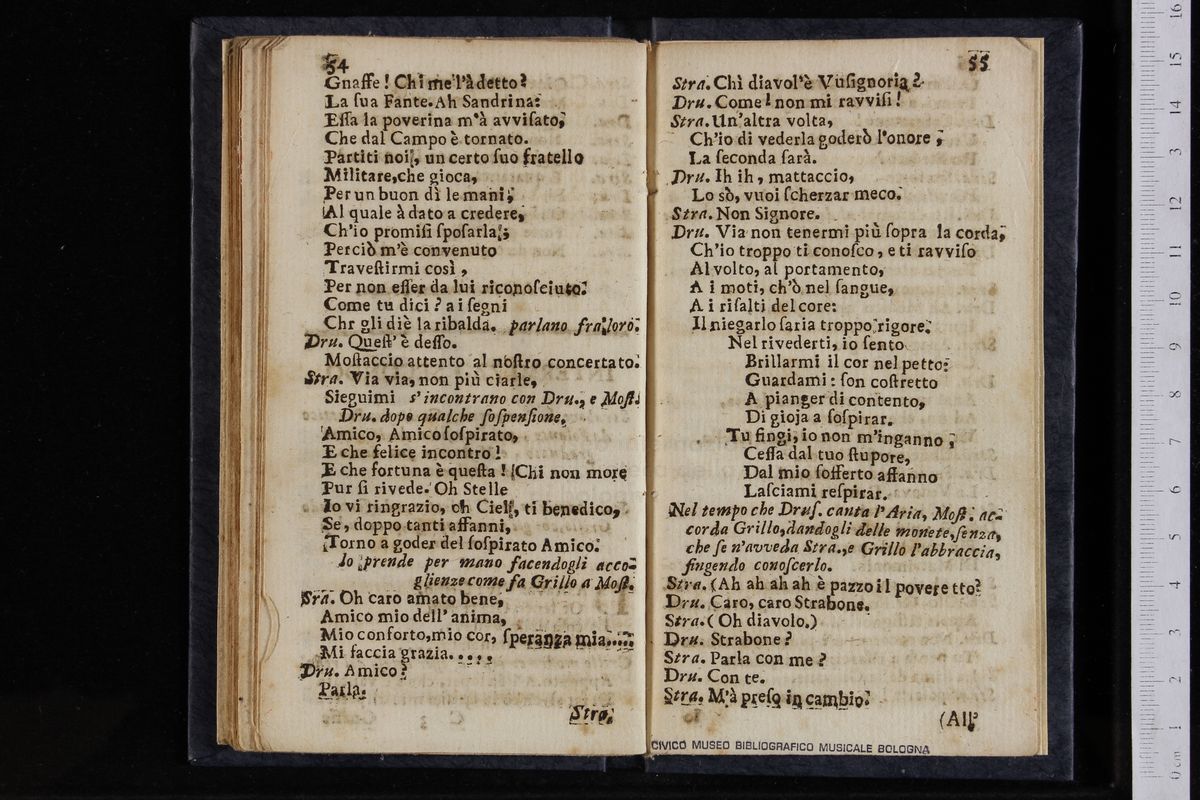 54
Gnaffe! Chi me l'à detto?
La ſua Fante. Ah Sandrina:
Eſſa la poverina m'à avviſato,
Che dal Campo è tornato.
Partiti noi, un certo ſuo fratello
Militare, che gioca,
Per un buon dì le mani;
Al quale à dato a credere,
Ch'io promiſi ſpoſarla;
Perciò m'è convenuto
Traveſtirmi così,
Per non eſſer da lui riconoſciuto.
Come tu dici? a i ſegni
Chr gli diè la ribalda. parlano fra loro.
Dru. Queſt' è deſſo.
Moſtaccio attento al noſtro concertato.
Stra. Via via, non più ciarle,
Sieguimi s'incontrano con Dru., e Moſt.
Dru. dopo qualche ſoſpenſione.
Amico, Amico ſoſpirato,
E che felice incontro!
E che fortuna è queſta! Chi non more
Pur ſi rivede. Oh Stelle
Io vi ringrazio, oh Ciel, ti benedico,
Se, doppo tanti affanni,
Torno a goder del ſoſpirato Amico.
lo prende per mano facendogli acco-
glienze come fa Grillo a Moſt.
Sra. Oh caro amato bene,
Amico mio dell' anima,
Mio conforto, mio cor, ſperanza mia....
Mi faccia grazia....
Dru. Amico?
Parla.
Stra.
55
Stra. Chì diavol'è Vuſignoria?
Dru. Come! non mi ravviſi!
Stra. Un'altra volta,
Ch'io di vederla goderò l'onore,
La ſeconda ſarà.
Dru. Ih ih, mattaccio,
Lo sò, vuoi ſcherzar meco.
Stra. Non Signore.
Dru. Via non tenermi più ſopra la corda,
Ch'io troppo ti conoſco, e ti ravviſo
Al volto, al portamento,
A i moti, ch'ò nel ſangue,
A i riſalti del core:
Il niegarlo ſaria troppo rigore.
Nel rivederti, io ſento
Brillarmi il cor nel petto:
Guardami: ſon coſtretto
A pianger di contento,
Di gioja a ſoſpirar.
Tu fingi, io non m'inganno;
Ceſſa dal tuo ſtupore,
Dal mio ſofferto affanno
Laſciami reſpirar.
Nel tempo che Druſ. canta l'Aria, Moſt. ac-
corda Grillo, dandogli delle monete, ſenza,
che ſe n'avveda Stra., e Grillo l'abbraccia,
fingendo conoſcerlo.
Stra. (Ah ah ah ah è pazzo il povere tto?
Dru. Caro, caro Strabone.
Stra. (Oh diavolo.)
Dru. Strabone?
Stra. Parla con me?
Dru. Con te.
Stra. M'à preſo in cambio.
(All'
CIVICO MUSEO BIBLIOGRAFICO MUSICALE BOLOGNA
0 cm 1 2 3 4 5 6 7 8 9 10 11 12 13 14 15 16